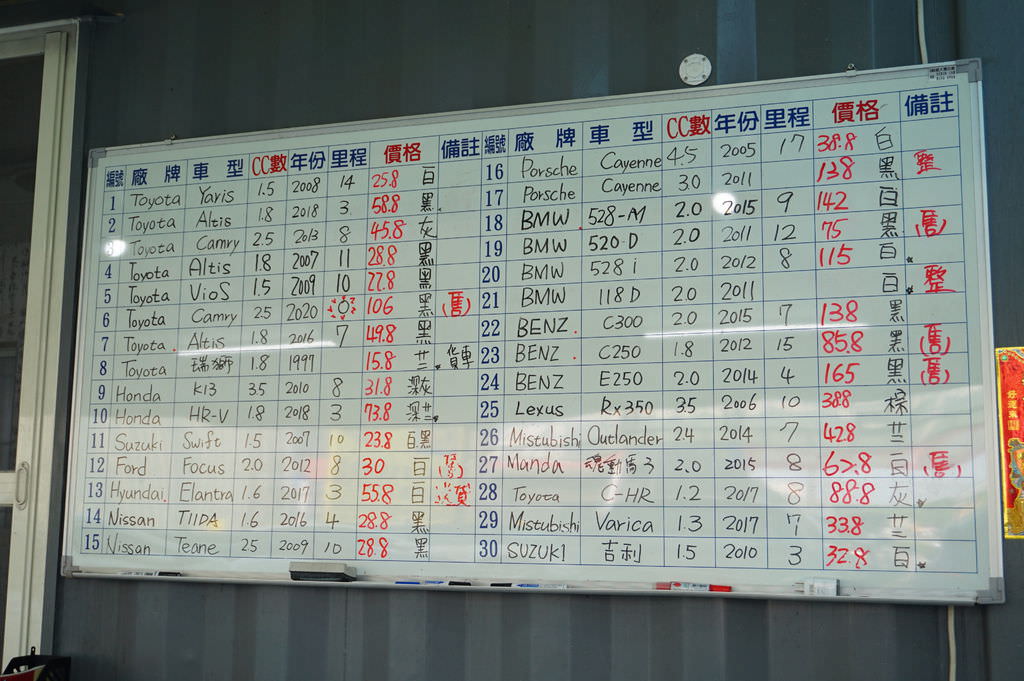 編號 廠牌 車型 CC數 年份 里程 價格 備註
1 Toyota Yaris 1.5 2008 14 25.8 白
2 Toyota Altis 1.8 2018 3 58.8 黑
3 Toyota Camry 2.5 2013 8 45.8 灰
4 Toyota Altis 1.8 2007 11 28.8 黑
5 Toyota Vios 1.5 2009 10 22.8 黑
6 Toyota Camry 2.5 2020 106 黑 (售)
7 Toyota Altis 1.8 2016 7 49.8 黑
8 Toyota 瑞獅 1.8 1997 15.8 貨車
9 Honda K13 3.5 2010 8 31.8 深灰
10 Honda HR-V 1.8 2018 3 73.8 深
11 Suzuki Swift 1.5 2007 10 23.8 白黑
12 Ford Focus 2.0 2012 8 30 白
13 Hyundai Elantra 1.6 2017 3 55.8 白
14 Nissan TIIDA 1.6 2016 4 28.8 黑
15 Nissan Teane 2.5 2009 10 28.8 黑
編號 廠牌 車型 CC數 年份 里程 價格 備註
16 Porsche Cayenne 4.5 2005 17 38.8 白
17 Porsche Cayenne 3.0 2011 138 黑 整
18 BMW 528-M 2.0 2015 9 142 白
19 BMW 520 D 2.0 2011 12 75 黑 (售)
20 BMW 528 i 2.0 2012 8 115 白
21 BMW 118 D 2.0 2011 白 整
22 BENZ C300 2.0 2015 7 138 黑
23 BENZ C250 1.8 2012 15 85.8 黑 (售)
24 BENZ E250 2.0 2014 4 165 黑 (售)
25 Lexus Rx350 3.5 2006 10 38.8 棕
26 Mistubishi Outlander 2.4 2014 7 42.8
27 Manda 魂動馬3 2.0 2015 8 62.8 白 (售)
28 Toyota C-HR 1.2 2017 8 88.8 灰
29 Mistubishi Varica 1.3 2017 7 33.8
30 SUZUKI 吉利 1.5 2010 3 32.8 白